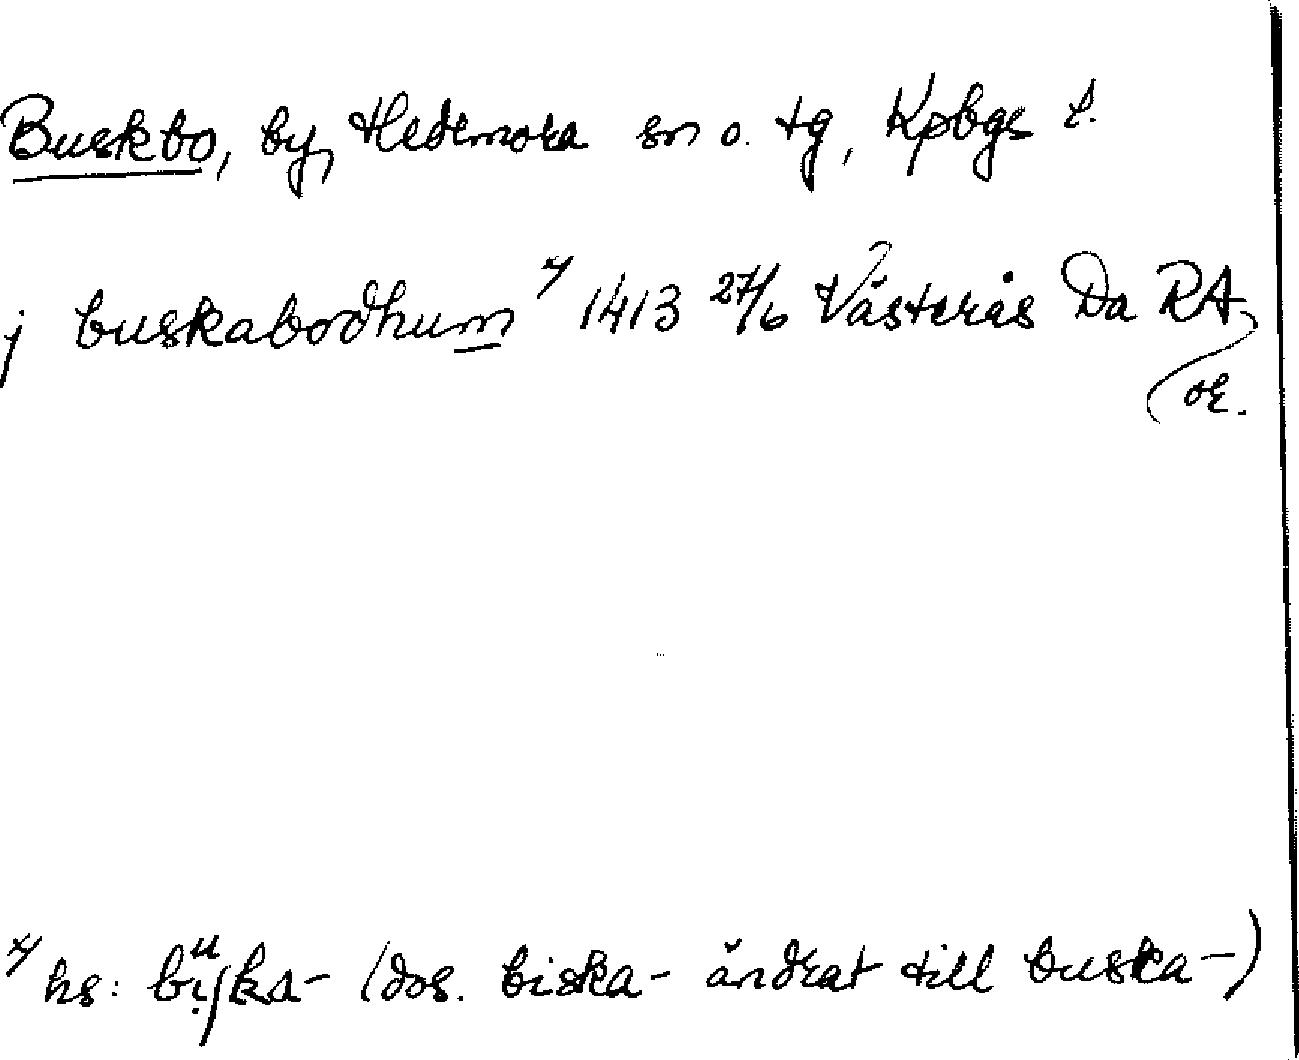 Buskbo, by, Hedemora sn o. tg, Kpbgs l.
j buskabodhum x/ 1413 27/6 Västerås Da RA
or.
x/ hs: biſka- (dvs. biska- ändrat till buska-)